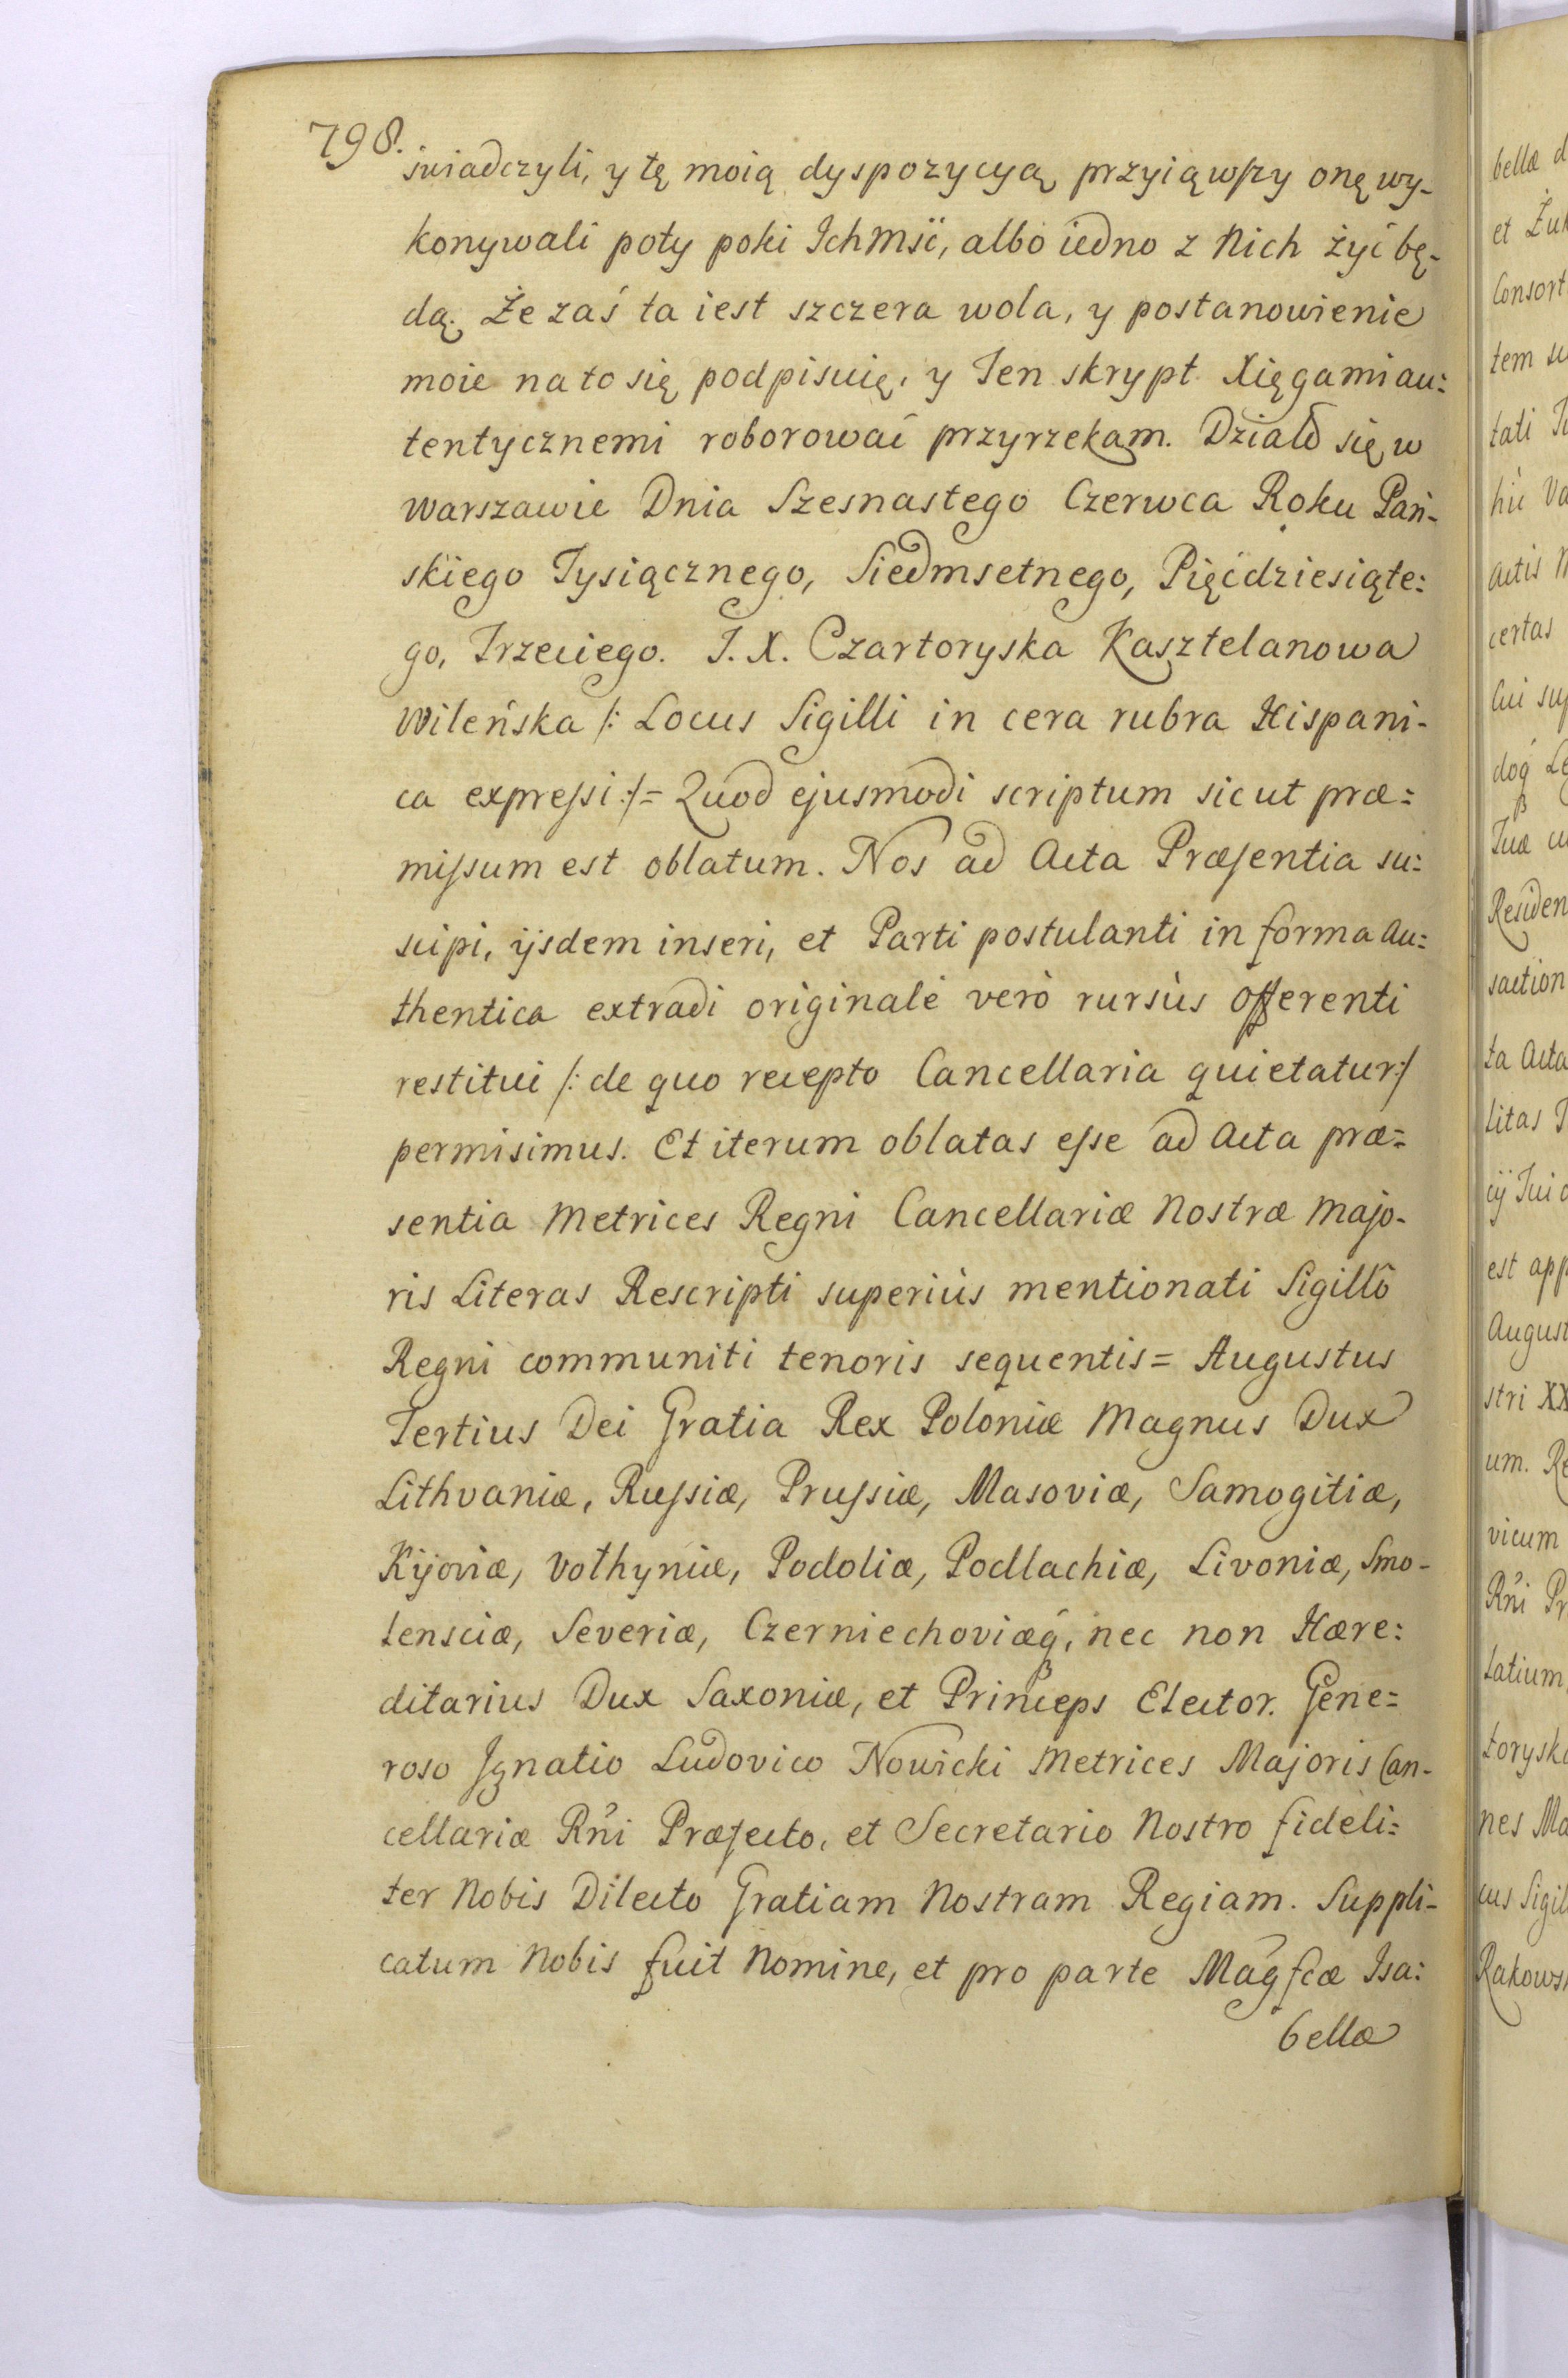 798.
świadczyli, y tę moią dyspozycyą przyiąwszy onę wy-
konywali poty poki Ichmść, albo iedno z Nich żyć bę-
dą. Że zaś ta iest szczera wola, y postanowienie
moie na to się podpisuię, y Ten skrypt Xięgami au:
tentycznemi roborować przyrzekam. Działo się w
Warszawie Dnia Szesnastego Czerwca Roku Pań-
skiego Tysiącznego, Siedmsetnego, Pięćdziesiąte:
go, Trzeciego. I. X. Czartoryska Kasztelanowa
Wileńska /: Locus Sigilli in cera rubra Hispani-
ca expressi :/= Quod ejusmodi scriptum sicut præ=
missum est oblatum. Nos ad Acta Præsentia su:
scipi, ijsdem inseri, et Parti postulanti in forma Au:
thentica extradi originale verò rursùs offerenti
restitui /: de quo recepto Cancellaria quietatur :/
permisimus. Et iterum oblatas esse ad Acta præ=
sentia Metrices Regni Cancellariæ Nostræ Majo-
ris Literas Rescripti superiùs mentionati Sigillô
Regni communiti tenoris sequentis = Augustus
Tertius Dei Gratia Rex Poloniæ Magnus Dux
Lithvaniæ, Russiæ, Prussiæ, Masoviæ, Samogitiæ,
Kijoviæ, Volhyniæ, Podoliæ, Podlachiæ, Livoniæ, Smo-
lensciæ, Severiæ, Czerniechoviæq́, nec non Hære:
ditarius Dux Saxoniæ, et Princeps Elector. Gene=
roso Ignatio Ludovico Nowicki Metrices Majoris Can-
cellariæ Rñi Præfecto, et Secretario Nostro fideli:
ter Nobis Dilecto Gratiam Nostram Regiam. Suppli-
catum Nobis fuit Nomine, et pro parte Mágfcæ Isa:
bellæ